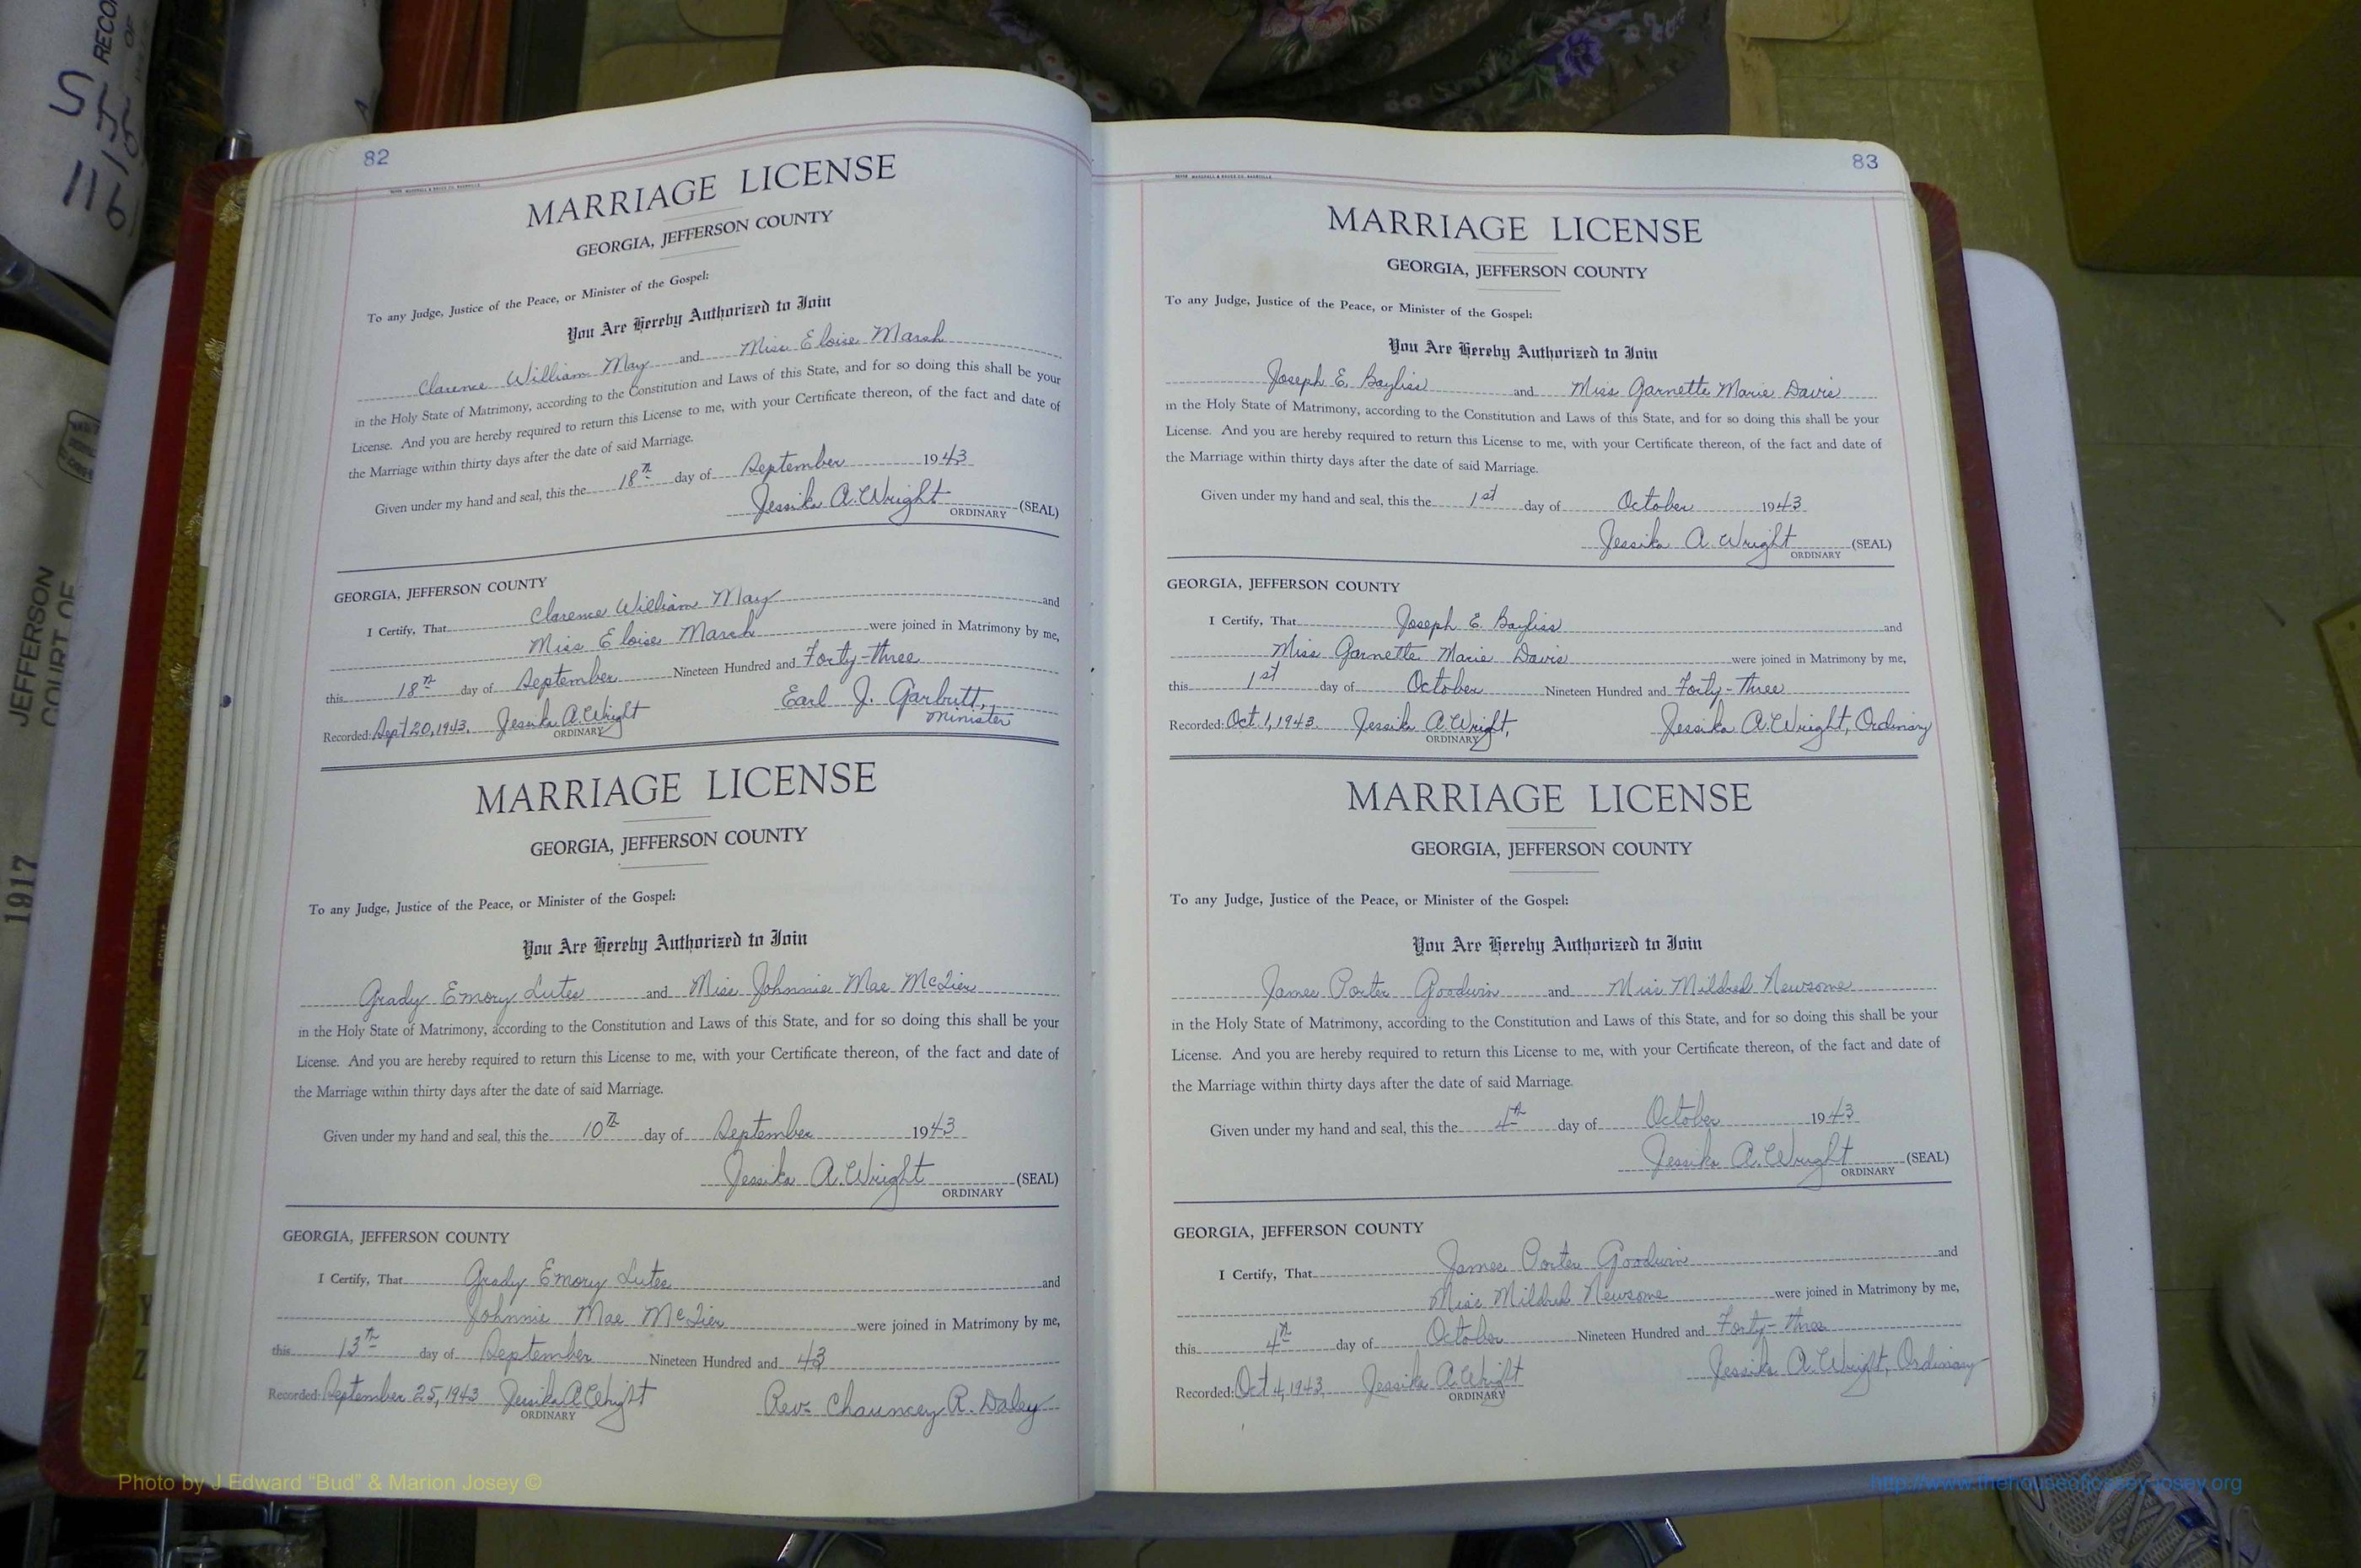 82
MARRIAGE LICENSE
GEORGIA, JEFFERSON COUNTY
To any Judge, Justice of the Peace, or Minister of the Gospel:
You Are Hereby Authorized to Join
Clarence William May and Miss Eloise Marsh
in the Holy State of Matrimony, according to the Constitution and Laws of this State, and for so doing this shall be your
License. And you are hereby required to return this License to me, with your Certificate thereon, of the fact and date of
the Marriage within thirty days after the date of said Marriage.
Given under my hand and seal, this the 18th day of September 1943
Jessika A. Wright (SEAL)
ORDINARY
GEORGIA, JEFFERSON COUNTY
I Certify, That Clarence William May and
Miss Eloise Marsh were joined in Matrimony by me,
this 18th day of September Nineteen Hundred and Forty-three
Earl J. Garbutt,
Minister
Recorded: Sept 20, 1943. Jessika A. Wright
ORDINARY
MARRIAGE LICENSE
GEORGIA, JEFFERSON COUNTY
To any Judge, Justice of the Peace, or Minister of the Gospel:
You Are Hereby Authorized to Join
Grady Emory Lutes and Miss Johnnie Mae McTier
in the Holy State of Matrimony, according to the Constitution and Laws of this State, and for so doing this shall be your
License. And you are hereby required to return this License to me, with your Certificate thereon, of the fact and date of
the Marriage within thirty days after the date of said Marriage.
Given under my hand and seal, this the 10th day of September 1943
Jessika A. Wright (SEAL)
ORDINARY
GEORGIA, JEFFERSON COUNTY
I Certify, That Grady Emory Lutes and
Johnnie Mae McTier were joined in Matrimony by me,
this 13th day of September Nineteen Hundred and 43
Recorded: September 25, 1943 Jessika A. Wright Rev. Chauncey R. Daley
ORDINARY
83
MARRIAGE LICENSE
GEORGIA, JEFFERSON COUNTY
To any Judge, Justice of the Peace, or Minister of the Gospel:
You Are Hereby Authorized to Join
Joseph E. Bayliss and Miss Garnette Marie Davis
in the Holy State of Matrimony, according to the Constitution and Laws of this State, and for so doing this shall be your
License. And you are hereby required to return this License to me, with your Certificate thereon, of the fact and date of
the Marriage within thirty days after the date of said Marriage.
Given under my hand and seal, this the 1st day of October 1943
Jessika A. Wright (SEAL)
ORDINARY
GEORGIA, JEFFERSON COUNTY
I Certify, That Joseph E. Bayliss and
Miss Garnette Marie Davis were joined in Matrimony by me,
this 1st day of October Nineteen Hundred and Forty-three
Recorded: Oct. 1, 1943. Jessika A. Wright, Jessika A. Wright, Ordinary
ORDINARY
MARRIAGE LICENSE
GEORGIA, JEFFERSON COUNTY
To any Judge, Justice of the Peace, or Minister of the Gospel:
You Are Hereby Authorized to Join
James Porter Goodwin and Miss Mildred Newsome
in the Holy State of Matrimony, according to the Constitution and Laws of this State, and for so doing this shall be your
License. And you are hereby required to return this License to me, with your Certificate thereon, of the fact and date of
the Marriage within thirty days after the date of said Marriage.
Given under my hand and seal, this the 4th day of October 1943
Jessika A. Wright (SEAL)
ORDINARY
GEORGIA, JEFFERSON COUNTY
I Certify, That James Porter Goodwin and
Miss Mildred Newsome were joined in Matrimony by me,
this 4th day of October Nineteen Hundred and Forty-three
Recorded: Oct 4, 1943 Jessika A. Wright Jessika A. Wright, Ordinary
ORDINARY
JEFFERSON
COURT OF
1917
Photo by J Edward "Bud" & Marion Josey ©
http://www.thehouseofjossey-josey.org